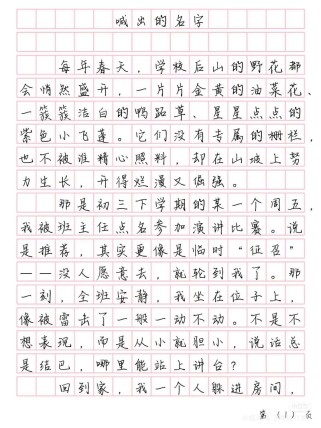 喊出的名字
每年春天，学校后山的野花都
会悄然盛开，一片片金黄的油菜花、
一簇簇洁白的鸭跖草、星星点点的
紫色小飞蓬。它们没有专属的栅栏，
也不被谁精心照料，却在山坡上努
力生长，开得烂漫又倔强。
那是初三下学期的某一个周五，
我被班主任点名参加演讲比赛。说
是推荐，其实更像是临时“征召”
——没人愿意去，就轮到我了。那
一刻，全班安静，我坐在位子上，
像被雷击了一般一动不动。不是不
想表现，而是从小就胆小，说话总
是结巴，哪里能站上讲台？
回到家，我一个人躲进房间，
第（1）页